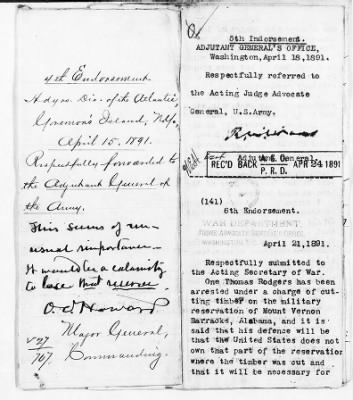 4th Endorsement
Hdqrs. Div. of the Atlantic,
Governor's Island,
April 15, 1891.
Respectfully forwarded to
the Adjutant General of
the Army.
This seems of un-
usual importance
It would be a calamity
to lose that reserve
O.O. Howard
Major General,
Commanding.
V 27
767
5th Indorsement.
ADJUTANT GENERAL'S OFFICE,
Washington, April 18, 1891.
Respectfully referred to
the Acting Judge Advocate
General, U.S.Army.
Adjutant General.
REC'D BACK A. G. O. P. R. D. APR 24 1891
(141)
6th Endorsement.
WAR DEPARTMENT
WASHINGTON
April 21, 1891.
Respectfully submitted to
the Acting Secretary of War.
One Thomas Rodgers has been
arrested under a charge of cut-
ting timber on the military
reservation of Mount Vernon
Barracks, Alabama, and it is
said that his defence will be
that the United States does not
own that part of the reservation
where the timber was cut and
that it will be necessary for